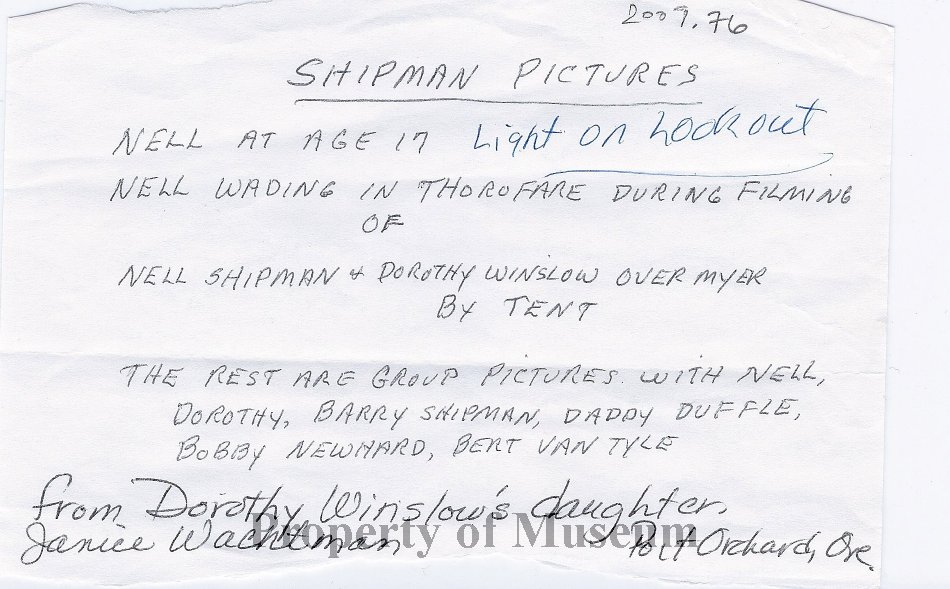 2009.76
SHIPMAN PICTURES
NELL AT AGE 17 Light on Lookout
NELL WADING IN THOROFARE DURING FILMING
OF
NELL SHIPMAN & DOROTHY WINSLOW OVERMYER
BY TENT
THE REST ARE GROUP PICTURES WITH NELL,
DOROTHY, BARRY SHIPMAN, DADDY DUFFLE,
BOBBY NEWHARD, BERT VAN TYLE
from Dorothy Winslow's daughter.
Janice Wachtman Port Orchard, Ore.
Property of Museum